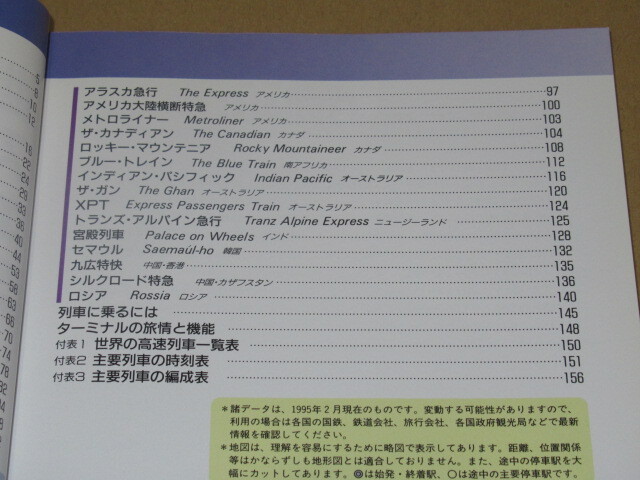 アラスカ急行 The Express アメリカ 97
アメリカ大陸横断特急 アメリカ 100
メトロライナー Metroliner アメリカ 103
ザ・カナディアン The Canadian カナダ 104
ロッキー・マウンテニア Rocky Mountaineer カナダ 108
ブルー・トレイン The Blue Train 南アフリカ 112
インディアン・パシフィック Indian Pacific オーストラリア 116
ザ・ガン The Ghan オーストラリア 120
XPT Express Passengers Train オーストラリア 124
トランズ・アルパイン急行 Tranz Alpine Express ニュージーランド 125
宮殿列車 Palace on Wheels インド 128
セマウル Saemaúl-ho 韓国 132
九広特快 中国・香港 135
シルクロード特急 中国・カザフスタン 136
ロシア Rossia ロシア 140
列車に乗るには 145
ターミナルの旅情と機能 148
付表1 世界の高速列車一覧表 150
付表2 主要列車の時刻表 151
付表3 主要列車の編成表 156
＊諸データは、1995年2月現在のものです。変動する可能性がありますので、
利用の場合は各国の国鉄、鉄道会社、旅行会社、各国政府観光局などで最新
情報を確認してください。
＊地図は、理解を容易にするために略図で表示してあります。距離、位置関係
等はかならずしも地形図とは適合しておりません。また、途中の停車駅を大
幅にカットしてあります。◎は始発・終着駅、○は途中の主要停車駅です。